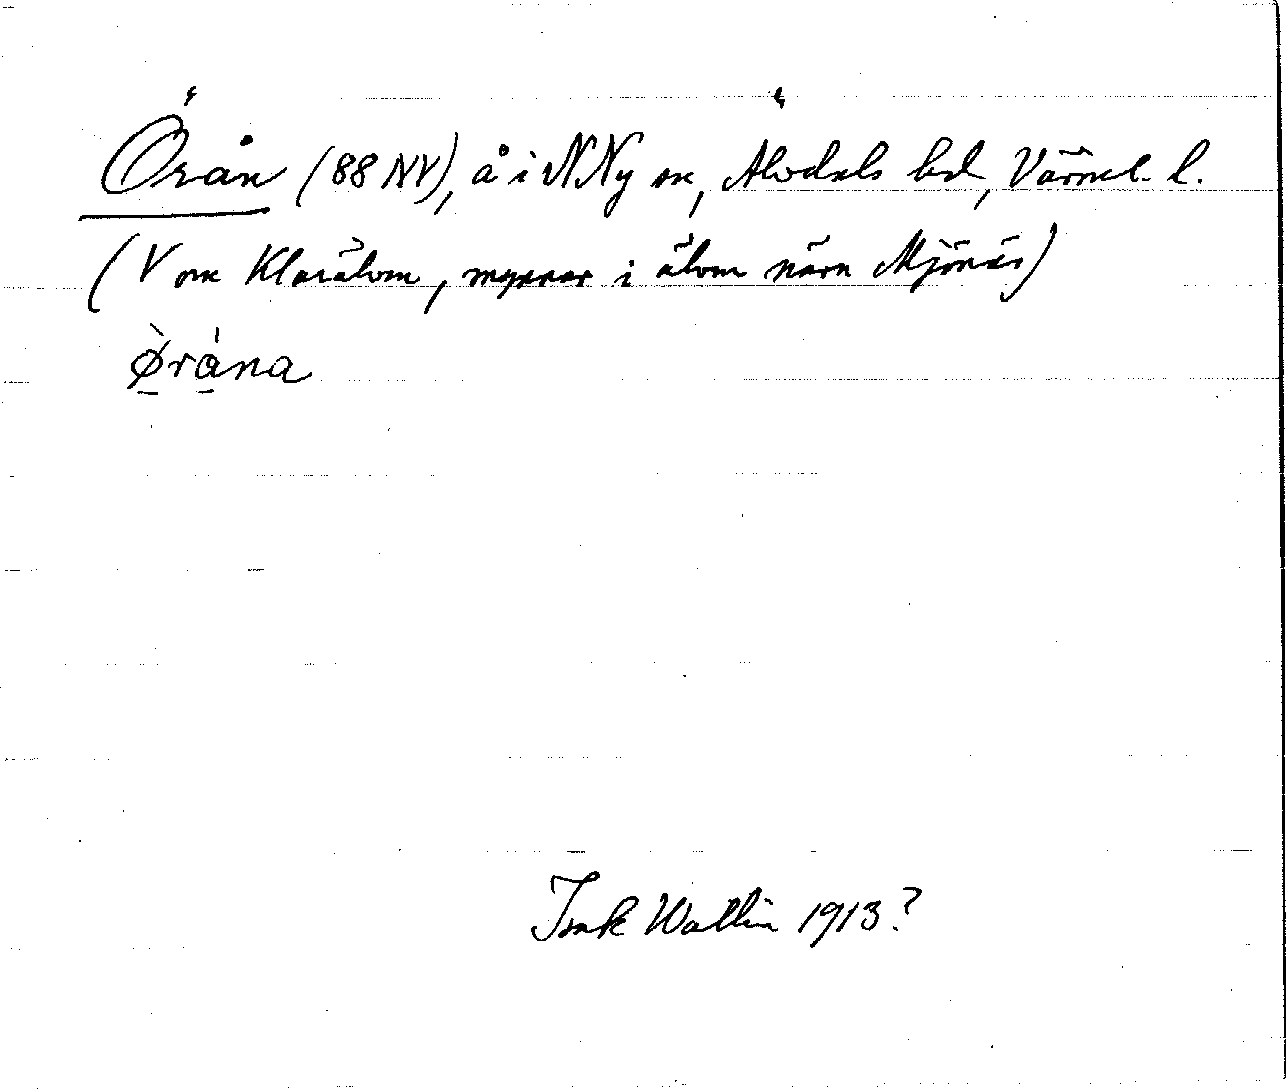 Örån (88 NV), å i N Ny sn, Älvdals hd, Värml. l.
(V om Klarälven, mynnar i älven nära Mjönäs)
Ø̀rǻna
Isak Wallin 1913?